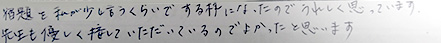 宿題を私が少し言うくらいでする様になったのでうれしく思っています。
先生も優しく接していただいているのでよかったと思います